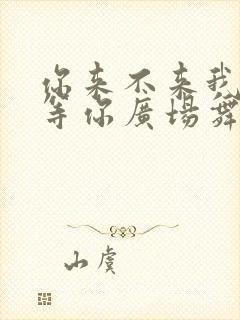 你来不来我
等你廣場舞
山虞